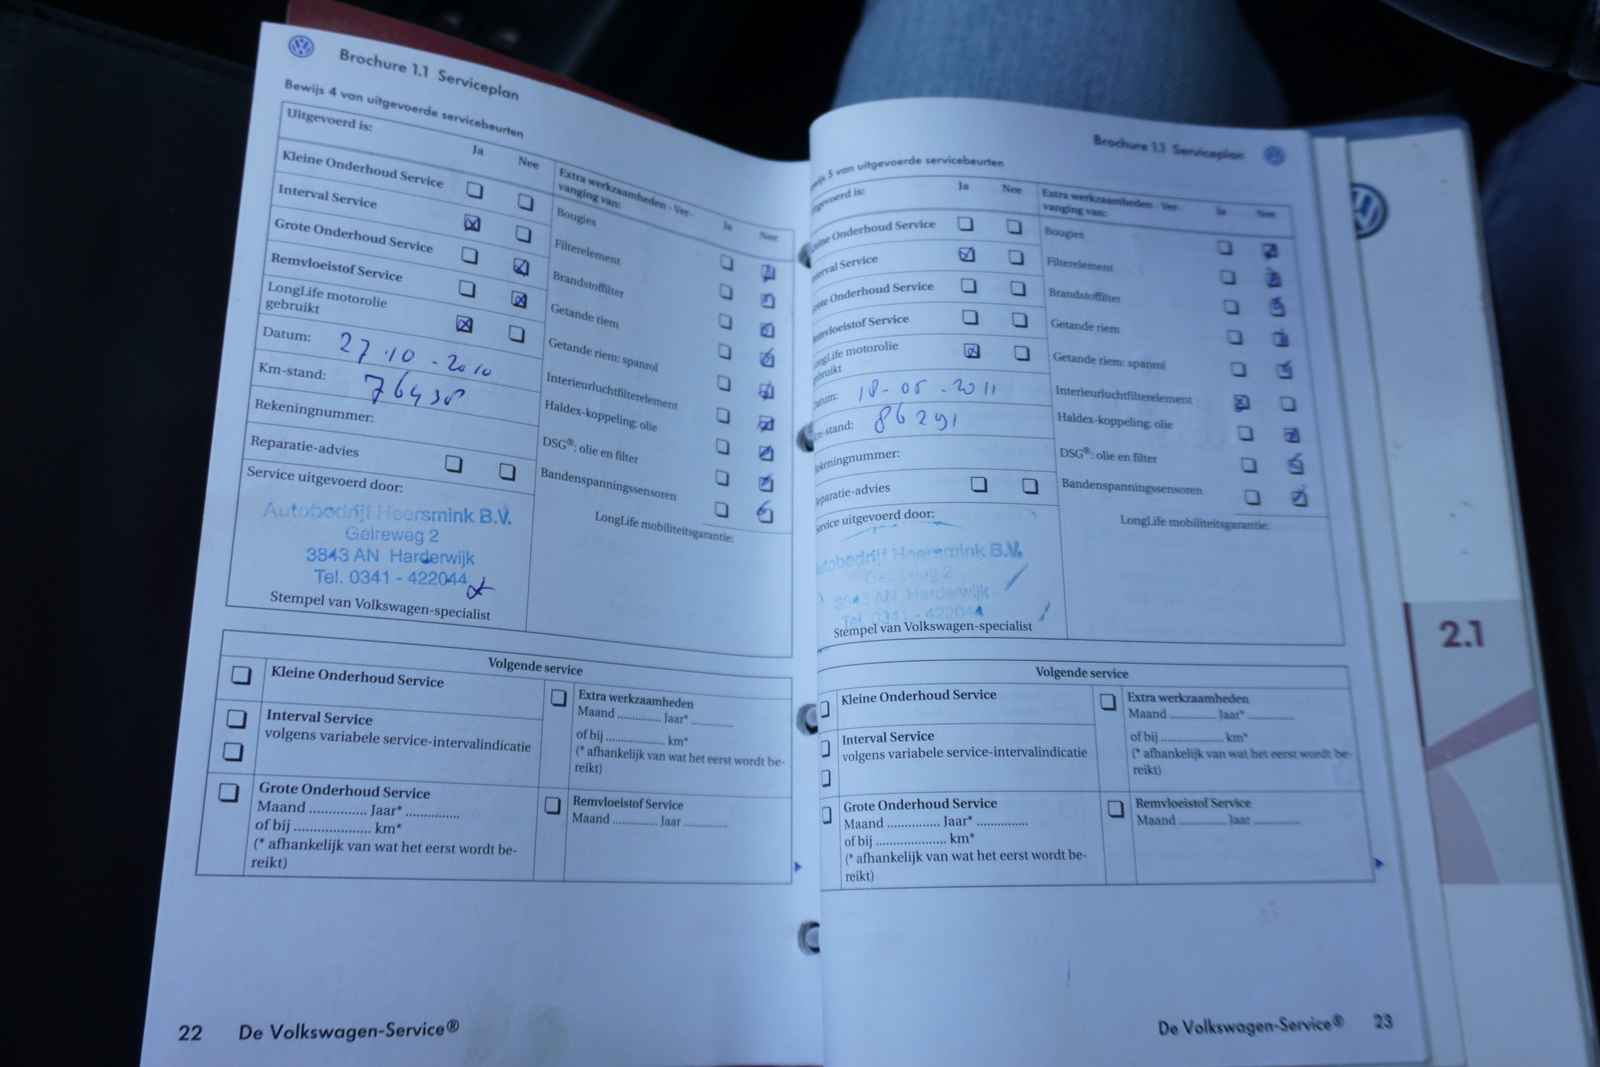 Brochure 1.1 Serviceplan
Bewijs 4 van uitgevoerde servicebeurten
Uitgevoerd is:
Ja Nee
Kleine Onderhoud Service
Interval Service
Grote Onderhoud Service
Remvloeistof Service
LongLife motorolie
gebruikt
Datum: 27.10-2010
Km-stand:
Rekeningnummer:
Reparatie-advies
Service uitgevoerd door:
Autobedrijf Heersmink B.V.
Gelreweg 2
3843 AN Harderwijk
Tel. 0341 - 422044
Stempel van Volkswagen-specialist
Extra werkzaamheden - Ver-
vanging van:
Ja Nee
Bougies
Filterelement
Brandstoffilter
Getande riem
Getande riem: spanrol
Interieurluchtfilterelement
Haldex-koppeling: olie
DSG®: olie en filter
Bandenspanningssensoren
LongLife mobiliteitsgarantie:
Volgende service
Kleine Onderhoud Service
Interval Service
volgens variabele service-intervalindicatie
Grote Onderhoud Service
Maand ............... Jaar* ...............
of bij ..................... km*
(* afhankelijk van wat het eerst wordt be-
reikt)
Extra werkzaamheden
Maand ............. Jaar* ............
of bij .................. km*
(* afhankelijk van wat het eerst wordt be-
reikt)
Remvloeistof Service
Maand ............. Jaar ............
22 De Volkswagen-Service®
Brochure 1.1 Serviceplan
5 van uitgevoerde servicebeurten
is:
Ja Nee
Onderhoud Service
Service
Onderhoud Service
Service
motorolie
Datum: 18-05-2011
stand: 86291
Service uitgevoerd door:
Autobedrijf Heersmink B.V.
Gelreweg 2
3843 AN Harderwijk
Tel. 0341 - 422044
Stempel van Volkswagen-specialist
Extra werkzaamheden - Ver-
vanging van:
Ja Nee
Bougies
Filterelement
Brandstoffilter
Getande riem
Getande riem: spanrol
Interieurluchtfilterelement
Haldex-koppeling: olie
DSG®: olie en filter
Bandenspanningssensoren
LongLife mobiliteitsgarantie:
Volgende service
Kleine Onderhoud Service
Interval Service
volgens variabele service-intervalindicatie
Grote Onderhoud Service
Maand ............... Jaar* ...............
of bij .................... km*
(* afhankelijk van wat het eerst wordt be-
reikt)
Extra werkzaamheden
Maand ............. Jaar* .............
of bij .................. km*
(* afhankelijk van wat het eerst wordt be-
reikt)
Remvloeistof Service
Maand ............. Jaar .............
De Volkswagen-Service® 23
2.1